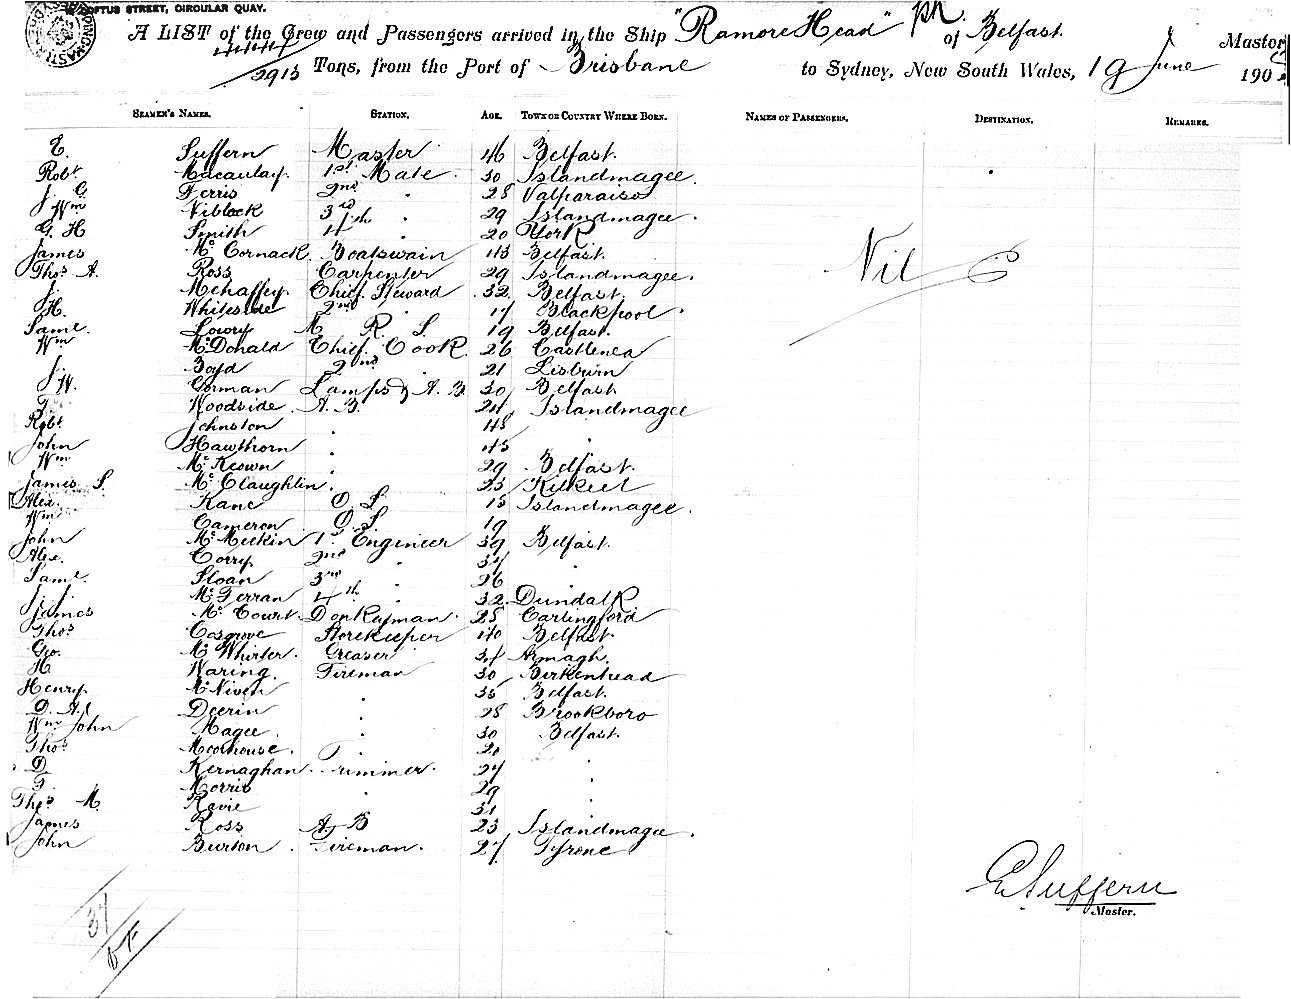 LOFTUS STREET, CIRCULAR QUAY.
A LIST of the Crew and Passengers arrived in the Ship "Ramore Head" of Belfast Master
4444
2913 Tons, from the Port of Brisbane to Sydney, New South Wales, 19 June 190
SEAMEN'S NAMES. STATION. AGE. TOWN OR COUNTRY WHERE BORN. NAMES OF PASSENGERS. DESTINATION. REMARKS.
E. Suffern Master 46 Belfast.
Robt Macaulay. 1st Mate. 30 Islandmagee.
J. G. Ferris 2nd 28 Valparaiso
Wm Niblock 3rd 29 Islandmagee.
G. H Smith 4th 20 York
James McCormack. Boatswain 43 Belfast.
Thos A. Ross Carpenter 29 Islandmagee.
J. Mehaffey. Chief Steward 32 Belfast.
H. Whiteside 2nd 17 Blackpool.
Saml. Lowry M R. S. 19 Belfast.
Wm McDonald Chief Cook 26
J. Boyd 2nd 21 Lisburn
W. Gorman Lamps & A. B. 30 Belfast
Woodside. A. B. 24 Islandmagee
Robt Johnston 48
John Hawthorn 45
Wm McKeown 29 Belfast.
James S. McClaughlin. 23 Kilkeel
Alex. Kane O S. 18 Islandmagee.
Wm Cameron O S. 19
John McMeekin 1st Engineer 39 Belfast.
Alex. Corry 2nd 34
Saml. Sloan 3rd 26
J. J. McFerran 4th 32 Dundalk
James McCourt. Donkeyman. 28 Carlingford
Thos Cosgrove Storekeeper 40 Belfast.
Geo. McWhirter. Greaser 34 Armagh.
H Waring. Fireman 30 Birkenhead
Henry McNiven 35 Belfast.
D. A. Deerin 28 Brookboro
Wm John Magee. 30 Belfast.
Thos Moorhouse.
D Kernaghan. Trimmer. 27
Morris 29
Thos M. Ravie 31
James Ross A B 23 Islandmagee.
John Burton. Fireman. 27 Tyrone
Nil
E Suffern
Master.
37